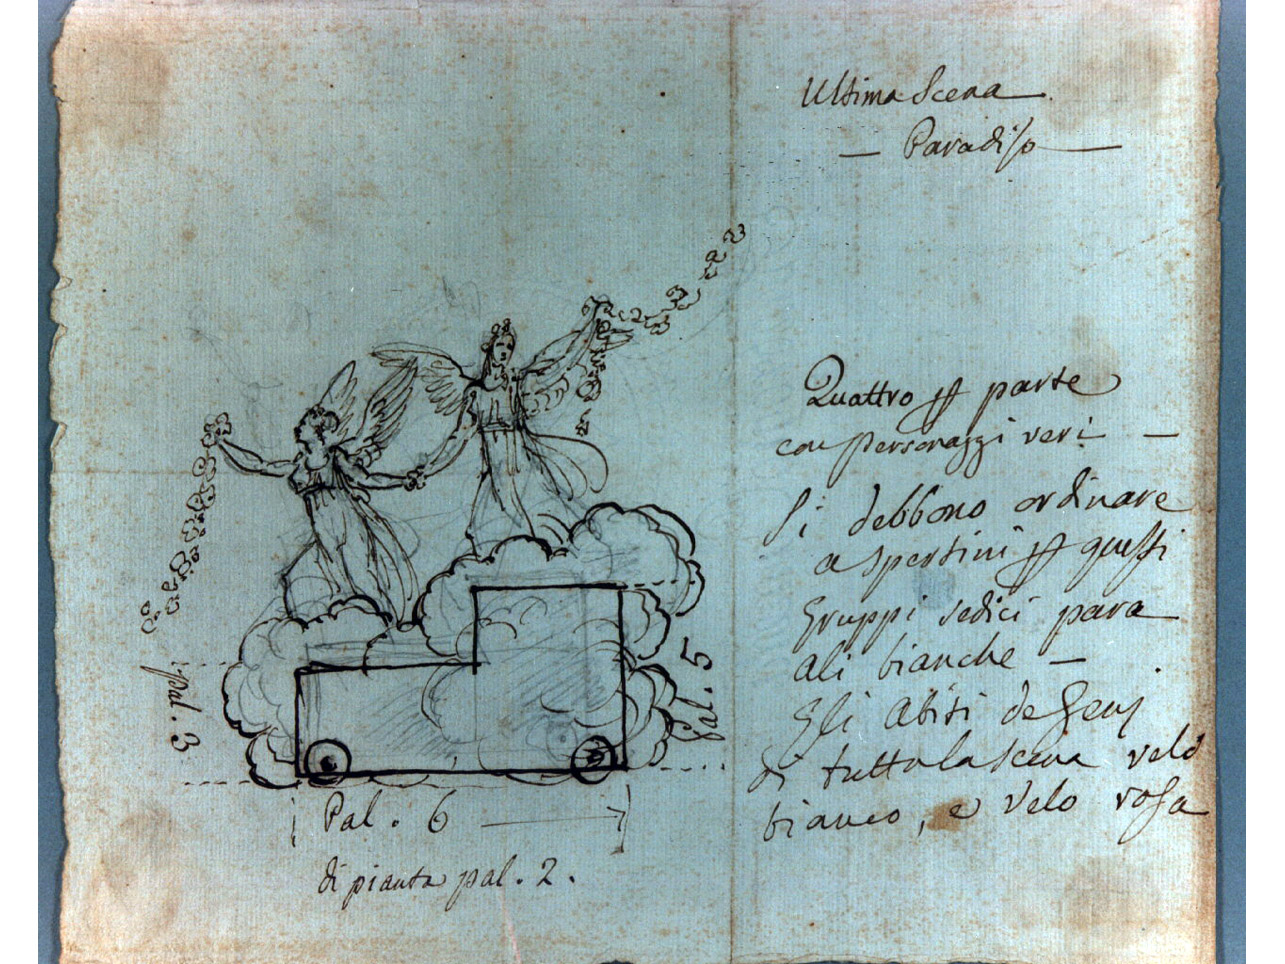 Ultima Scena
— Paradiso —
Quattro p parte
con personaggi veri —
Si debbono ordinare
a spertini p questi
Gruppi sedici para
ali bianche —
Gli Abiti de Genj
di tutta la scena velo
bianco, e velo rosa
Pal. 3
Pal. 5
Pal. 6
di pianta pal. 2.